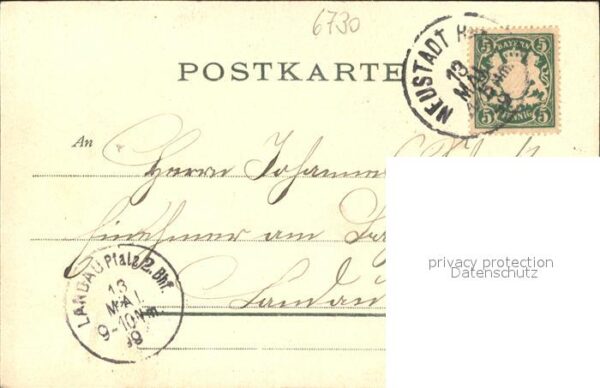 6730
POSTKARTE
NEUSTADT
13
MAI
BAYERN
5 5
5 5
PFENNIG
An
Herrn Johannes
Einnehmer am
Landau
LANDAU Pfalz 2. Bhf.
13
MAI
9-10 Nm.
99
privacy protection
Datenschutz